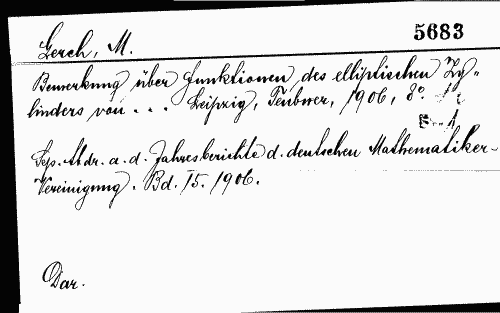 5683
Lerch, M.
Bemerkung über Funktionen des elliptischen Zy=
linders von . . . Leipzig, Teubner, 1906, 8°.
Sep. Abdr. a. d. Jahresberichte d. deutschen Mathematiker-
Vereinigung. Bd. 15. 1906.
Dar.